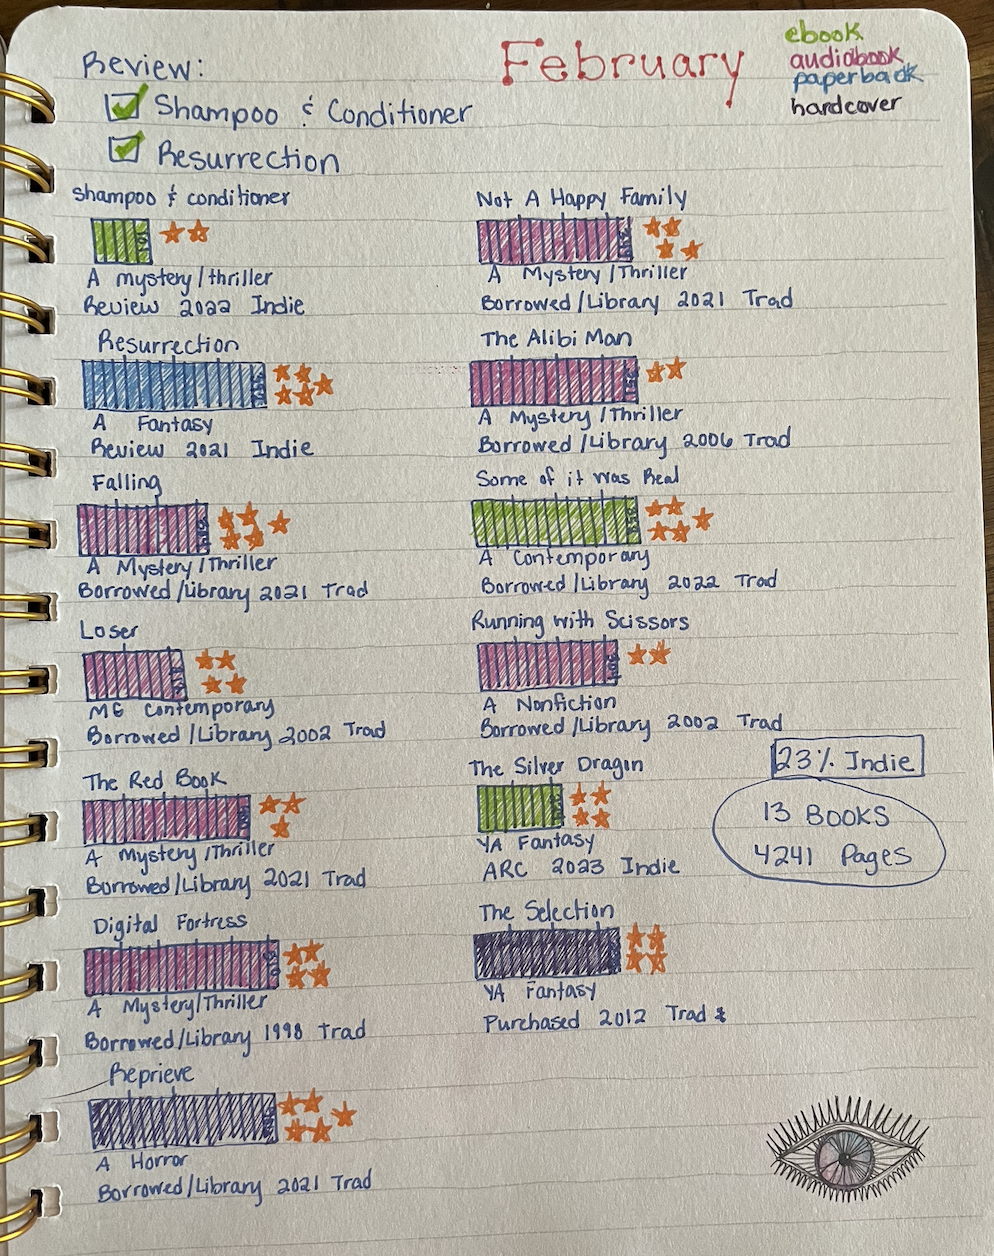 Review:
February
ebook
audiobook
paperback
hardcover
Shampoo & Conditioner
Resurrection
Shampoo & conditioner
A mystery/thriller
Review 2022 Indie
Resurrection
A Fantasy
Review 2021 Indie
Falling
A Mystery/Thriller
Borrowed/Library 2021 Trad
Loser
MG Contemporary
Borrowed/Library 2002 Trad
The Red Book
A Mystery/Thriller
Borrowed/Library 2021 Trad
Digital Fortress
A Mystery/Thriller
Borrowed/Library 1998 Trad
Reprieve
A Horror
Borrowed/Library 2021 Trad
Not A Happy Family
A Mystery/Thriller
Borrowed/Library 2021 Trad
The Alibi Man
A Mystery/Thriller
Borrowed/Library 2006 Trad
Some of it was Real
A Contemporary
Borrowed/Library 2022 Trad
Running with Scissors
A Nonfiction
Borrowed/Library 2002 Trad
The Silver Dragon
YA Fantasy
ARC 2023 Indie
The Selection
YA Fantasy
Purchased 2012 Trad
23% Indie
13 Books
4241 Pages